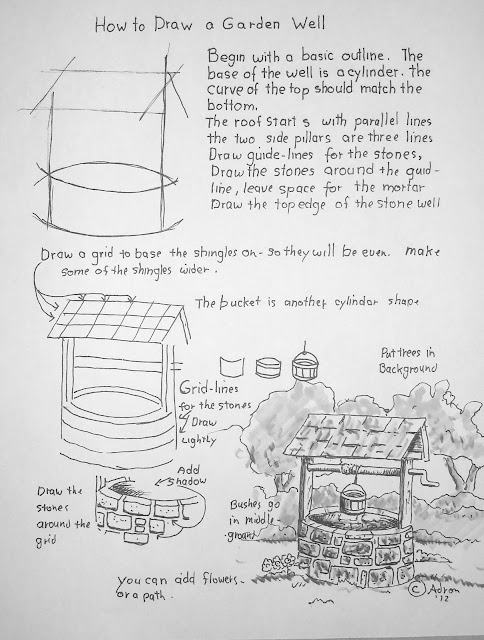 How to Draw a Garden Well
Begin with a basic outline. The
base of the well is a cylinder. the
curve of the top should match the
bottom.
The roof starts with parallel lines
the two side pillars are three lines
Draw guide-lines for the stones,
Draw the stones around the guid-
line, leave space for the mortar
Draw the top edge of the stone well
Draw a grid to base the shingles on - so they will be even. make
some of the shingles wider.
The bucket is another cylindar shape
Put trees in
Background
Grid-lines
for the stones
Draw
Lightly
Add
shadow
Draw the
stones
around the
grid
Bushes go
in middle-
ground
you can add flowers.
or a path.
© Adron
'12